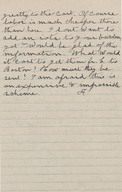 greatly to the cost. Of course
labor is much cheaper there
than here. I don't want to
add an extra to your burden
yet I would be glad of this
information. What would
it cost to get them to &
Boston? How must they be
sent? I am afraid this is
an expensive & impossible
scheme.